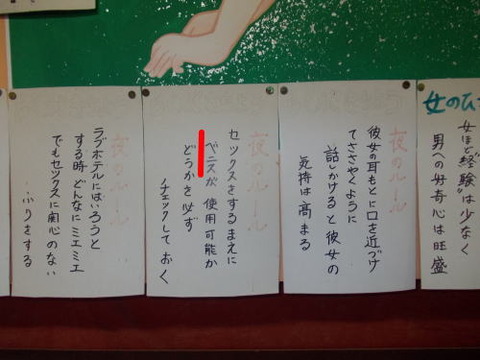 女のひ
女ほど"経験"は少なく
男への好奇心は旺盛
夜のルール
彼女の耳もとに口を近づけ
てささやくように
話しかけると彼女の
気持は高まる
夜のルール
セックスをするまえに
ペニスが使用可能か
どうか必ず
チェックしておく
夜のルール
ラブホテルにはいろうと
する時どんなにミエミエ
でもセックスに関心のない
ふりをする